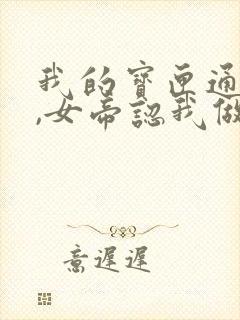 我的寶匣通
,女帝認我做
意遲遲